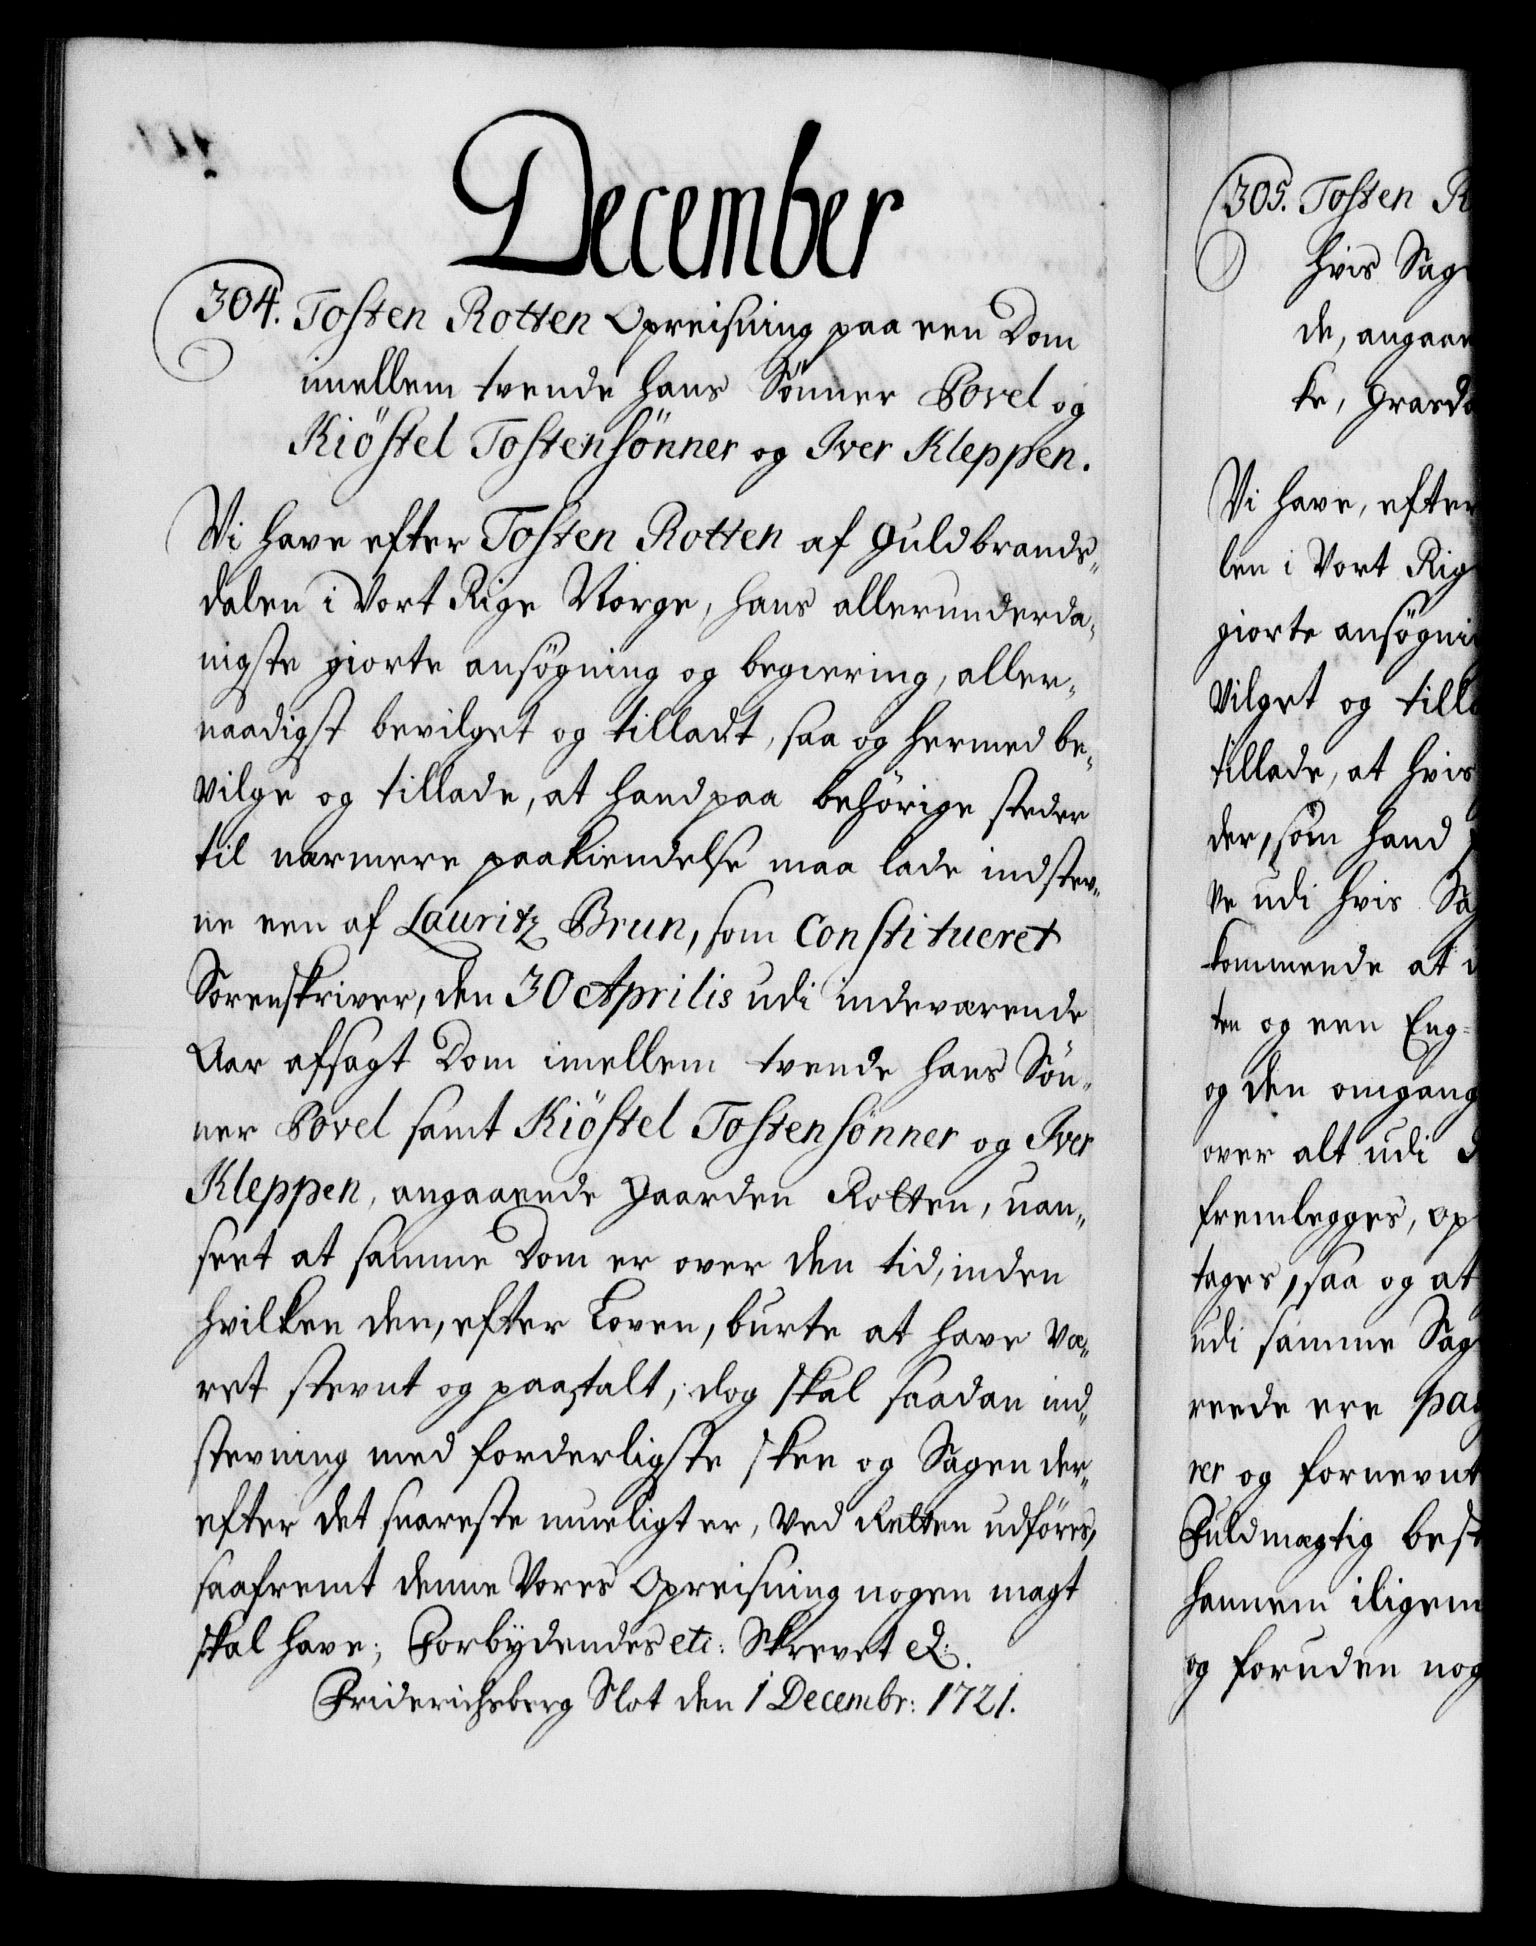 December
304. Tosten Rotten Opreisning paa een Dom
imellem tvende hans Sönner Povel og
Kiöstel Tostensönner og Iver Kleppen.
Vi have efter Tosten Rotten af Guldbrands„
dalen i Vort Rige Norge, hans allerunderda„
nigste giorte ansøgning og begiering, aller„
naadigst bevilget og tilladt, saa og hermed be„
vilge og tillade, at hand paa behörige steder
til nærmere paakiendelse maa lade indstev„
ne een af Lauritz Brun, som Constitueret
Sorenskriver, den 30 Aprilis udi indeværende
Aar afsagt Dom imellem tvende hans Sön„
ner Povel samt Kiöstel Tostensönner og Iver
Kleppen, angaaende Gaarden Rotten, uan„
seet at samme Dom er over den tid, inden
hvilken den, efter Loven, burte at have væ„
ret stevnt og paatalt; dog skal saadan ind„
stevning med forderligste skee og Sagen der„
efter det snareste mueligt er, ved Retten udföres,
saafremt denne Vores Opreisning nogen magt
skal have; Forbydendes etc: Skrevet &.
Friderichsberg Slot den 1 Decembr: 1721.
305. Tosten R
hvis Sag
de, angaae
ke, Græsd
Vi have, efter
len i Vort Rig
giorte ansøgni
vilget og till
tillade, at hvis
der, som hand
ve udi hvis Sag
kommende at
ten og een Eng=
og den omgang
over alt udi
fremlegges, op
tages, saa og at
udi samme Sag
reede ere paa
rer og fornevnt
Fuldmægtig best
hannem iligem
og foruden nog